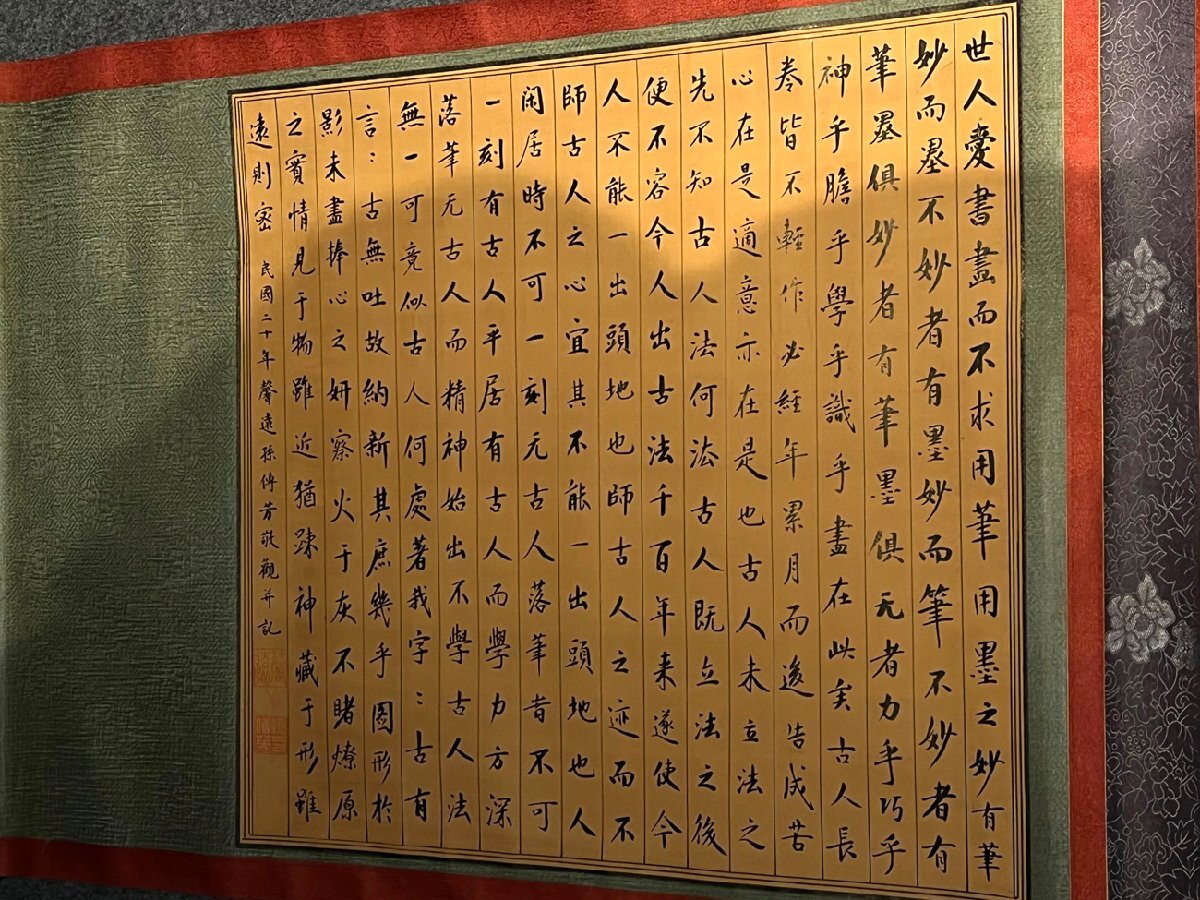 世人愛書畫而不求用筆用墨之妙有筆
妙而墨不妙者有墨妙而筆不妙者有
筆墨俱妙者有筆墨俱无者力乎巧乎
神乎膽乎學乎識乎盡在此矣古人長
卷皆不輕作必經年累月而後告成苦
心在是適意亦在是也古人未立法之
先不知古人法何法古人既立法之後
便不容今人出古法千百年来遂使今
人不能一出頭地也師古人之迹而不
師古人之心宜其不能一出頭地也人
闲居時不可一刻无古人落筆時不可
一刻有古人平居有古人而學力方深
落筆无古人而精神始出不學古人法
無一可竟似古人何處著我字字古有
言言古無吐故納新其庶幾乎圖形於
影未盡捧心之妍察火于灰不睹燎原
之實情見于物雖近猶疎神藏于形雖
遠則密 民國二十年馨遠孫傳芳敬觀并記